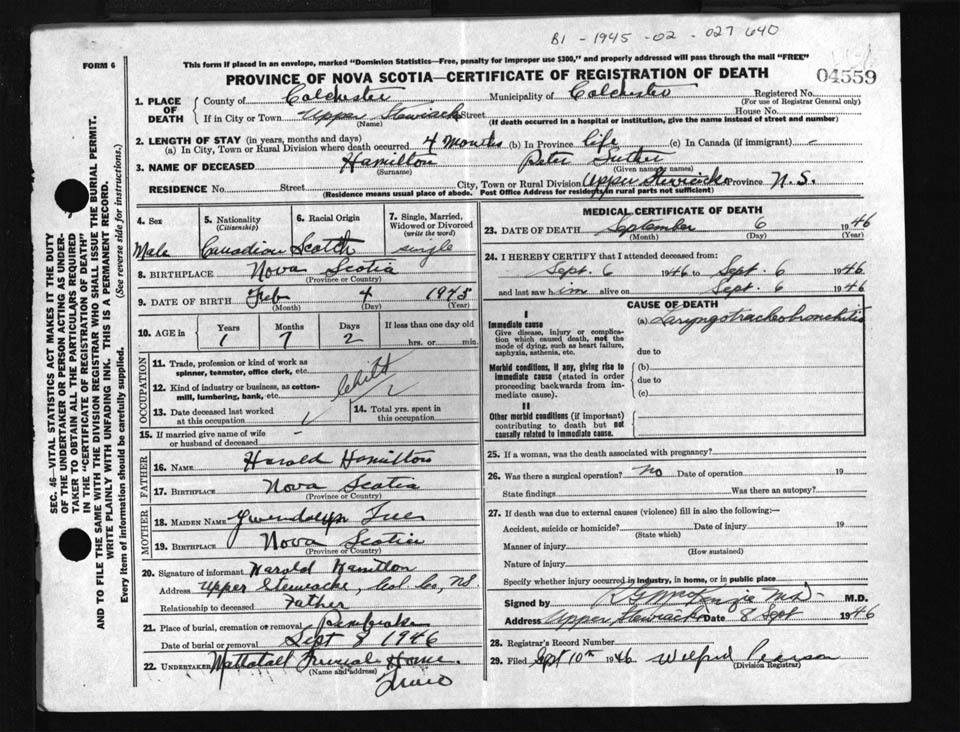 B1 - 1945 - 02 - 027 640
FORM 6
This form if placed in an envelope, marked "Dominion Statistics—Free, penalty for improper use $300," and properly addressed will pass through the mail "FREE"
PROVINCE OF NOVA SCOTIA—CERTIFICATE OF REGISTRATION OF DEATH
04559
1. PLACE OF DEATH County of Colchester Municipality of Colchester Registered No.
(For use of Registrar General only)
If in City or Town Upper Stewiacke Street House No.
(Name) (If death occurred in a hospital or institution, give the name instead of street and number)
2. LENGTH OF STAY (in years, months and days)
(a) In City, Town or Rural Division where death occurred 4 months (b) In Province life (c) In Canada (if immigrant) -
3. NAME OF DECEASED Hamilton Peter
(Surname) (Given name or names)
RESIDENCE No. Street City, Town or Rural Division Upper Stewiacke Province N.S.
(Residence means usual place of abode. Post Office Address for residents in rural parts not sufficient)
SEC. 46—VITAL STATISTICS ACT MAKES IT THE DUTY
OF THE UNDERTAKER OR PERSON ACTING AS UNDER-
TAKER TO OBTAIN ALL THE PARTICULARS REQUIRED
IN THE "CERTIFICATE OF REGISTRATION OF DEATH"
AND TO FILE THE SAME WITH THE DIVISION REGISTRAR WHO SHALL ISSUE THE BURIAL PERMIT.
WRITE PLAINLY WITH UNFADING INK. THIS IS A PERMANENT RECORD.
Every item of information should be carefully supplied. (See reverse side for instructions.)
4. Sex
Male
5. Nationality
(Citizenship)
Canadian
6. Racial Origin
Scotch
7. Single, Married,
Widowed or Divorced
(write the word)
single
8. BIRTHPLACE Nova Scotia
(Province or Country)
9. DATE OF BIRTH Feb 4 1945
(Month) (Day) (Year)
10. AGE in Years Months Days If less than one day old
1 7 2 hrs. or min.
OCCUPATION
11. Trade, profession or kind of work as
spinner, teamster, office clerk, etc.
Child
12. Kind of industry or business, as cotton-
mill, lumbering, bank, etc.
13. Date deceased last worked
at this occupation
14. Total yrs. spent in
this occupation
15. If married give name of wife
or husband of deceased -
FATHER
16. NAME Harold Hamilton
17. BIRTHPLACE Nova Scotia
(Province or Country)
MOTHER
18. MAIDEN NAME Gwendolyn
19. BIRTHPLACE Nova Scotia
(Province or Country)
20. Signature of informant Harold Hamilton
Address Upper Stewiacke, Col. Co, NS.
Relationship to deceased Father
21. Place of burial, cremation or removal Pembroke
Date of burial or removal Sept 8 1946
22. UNDERTAKER Mattatall Funeral Home.
(Name and address)
Truro
MEDICAL CERTIFICATE OF DEATH
23. DATE OF DEATH September 6 1946
(Month) (Day) (Year)
24. I HEREBY CERTIFY that I attended deceased from:
Sept. 6 1946 to Sept. 6 1946
and last saw him alive on Sept. 6 1946
CAUSE OF DEATH
I
Immediate cause
Give disease, injury or complica-
tion which caused death, not the
mode of dying, such as heart failure,
asphyxia, asthenia, etc.
(a) Laryngotracheobronchitis
due to
Morbid conditions, if any, giving rise to
immediate cause (stated in order
proceeding backwards from im-
mediate cause).
(b)
due to
(c)
II
Other morbid conditions (if important)
contributing to death but not
causally related to immediate cause.
25. If a woman, was the death associated with pregnancy?
26. Was there a surgical operation? No Date of operation 19
State findings Was there an autopsy?
27. If death was due to external causes (violence) fill in also the following:—
Accident, suicide or homicide? Date of injury 19
(State which)
Manner of injury
(How sustained)
Nature of injury
Specify whether injury occurred in industry, in home, or in public place
Signed by McKenzie M.D. M.D.
Address Upper Stewiacke Date 8 Sept 1946
28. Registrar's Record Number
29. Filed Sept 10th 1946 Wilfred Pearson
(Division Registrar)